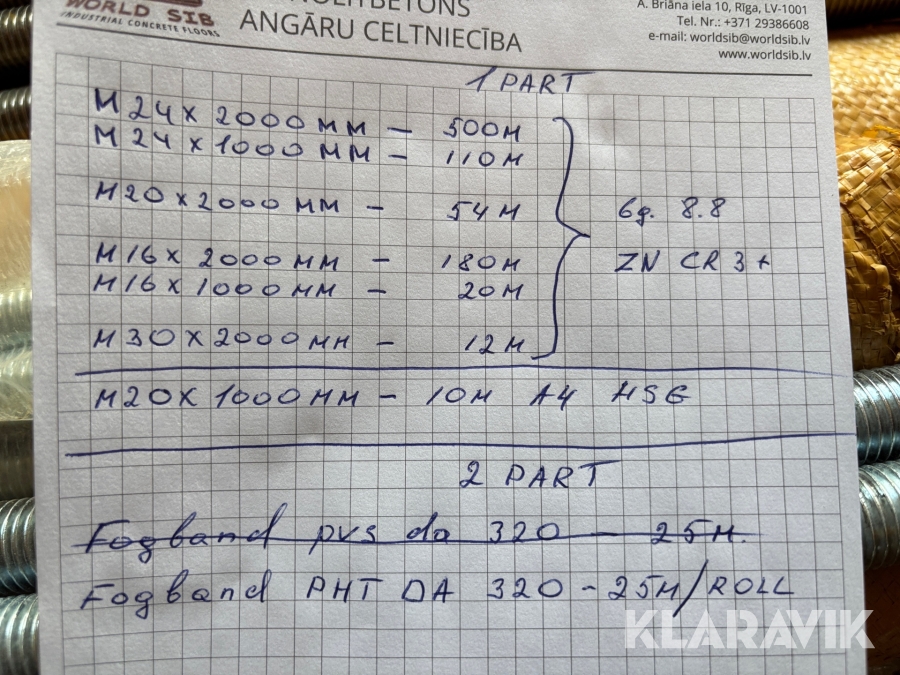 WORLD SIB
INDUSTRIAL CONCRETE FLOORS
ANGĀRU CELTNIECĪBA
A. Briāna iela 10, Rīga, LV-1001
Tel. Nr.: +371 29386608
e-mail: worldsib@worldsib.lv
www.worldsib.lv
1 PART
M24x2000мм – 500м
M24x1000мм – 110м
M20x2000мм – 54м
6g. 8.8
M16x2000мм – 180м
ZN CR3+
M16x1000мм – 20м
M30x2000мм – 12м
M20x1000мм – 10м A4 HSG
2 PART
Fogband pvs da 320 – 25м.
Fogband PHT DA 320 – 25м/ROLL
KLARAVIK